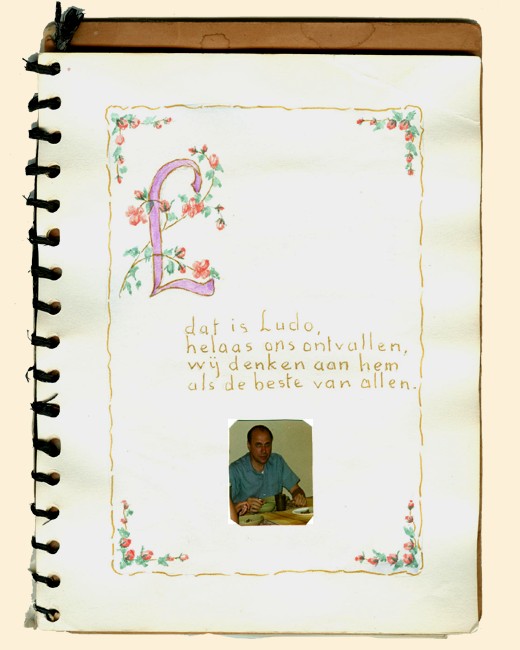 L
dat is Ludo,
helaas ons ontvallen,
wij denken aan hem
als de beste van allen.